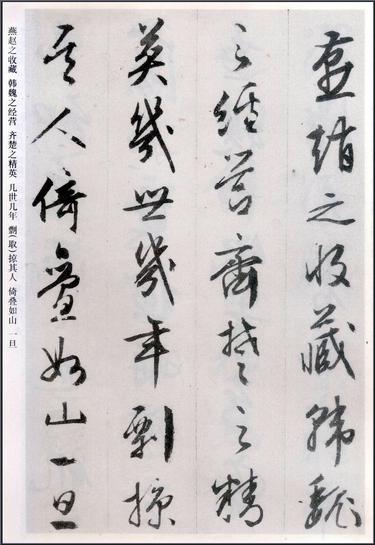 燕趙之收藏韓魏
之經營齊楚之精
英幾世幾年剽掠
其人倚疊如山一旦
燕赵之收藏 韩魏之经营 齐楚之精英 几世几年 剽(取)掠其人 倚叠如山 一旦